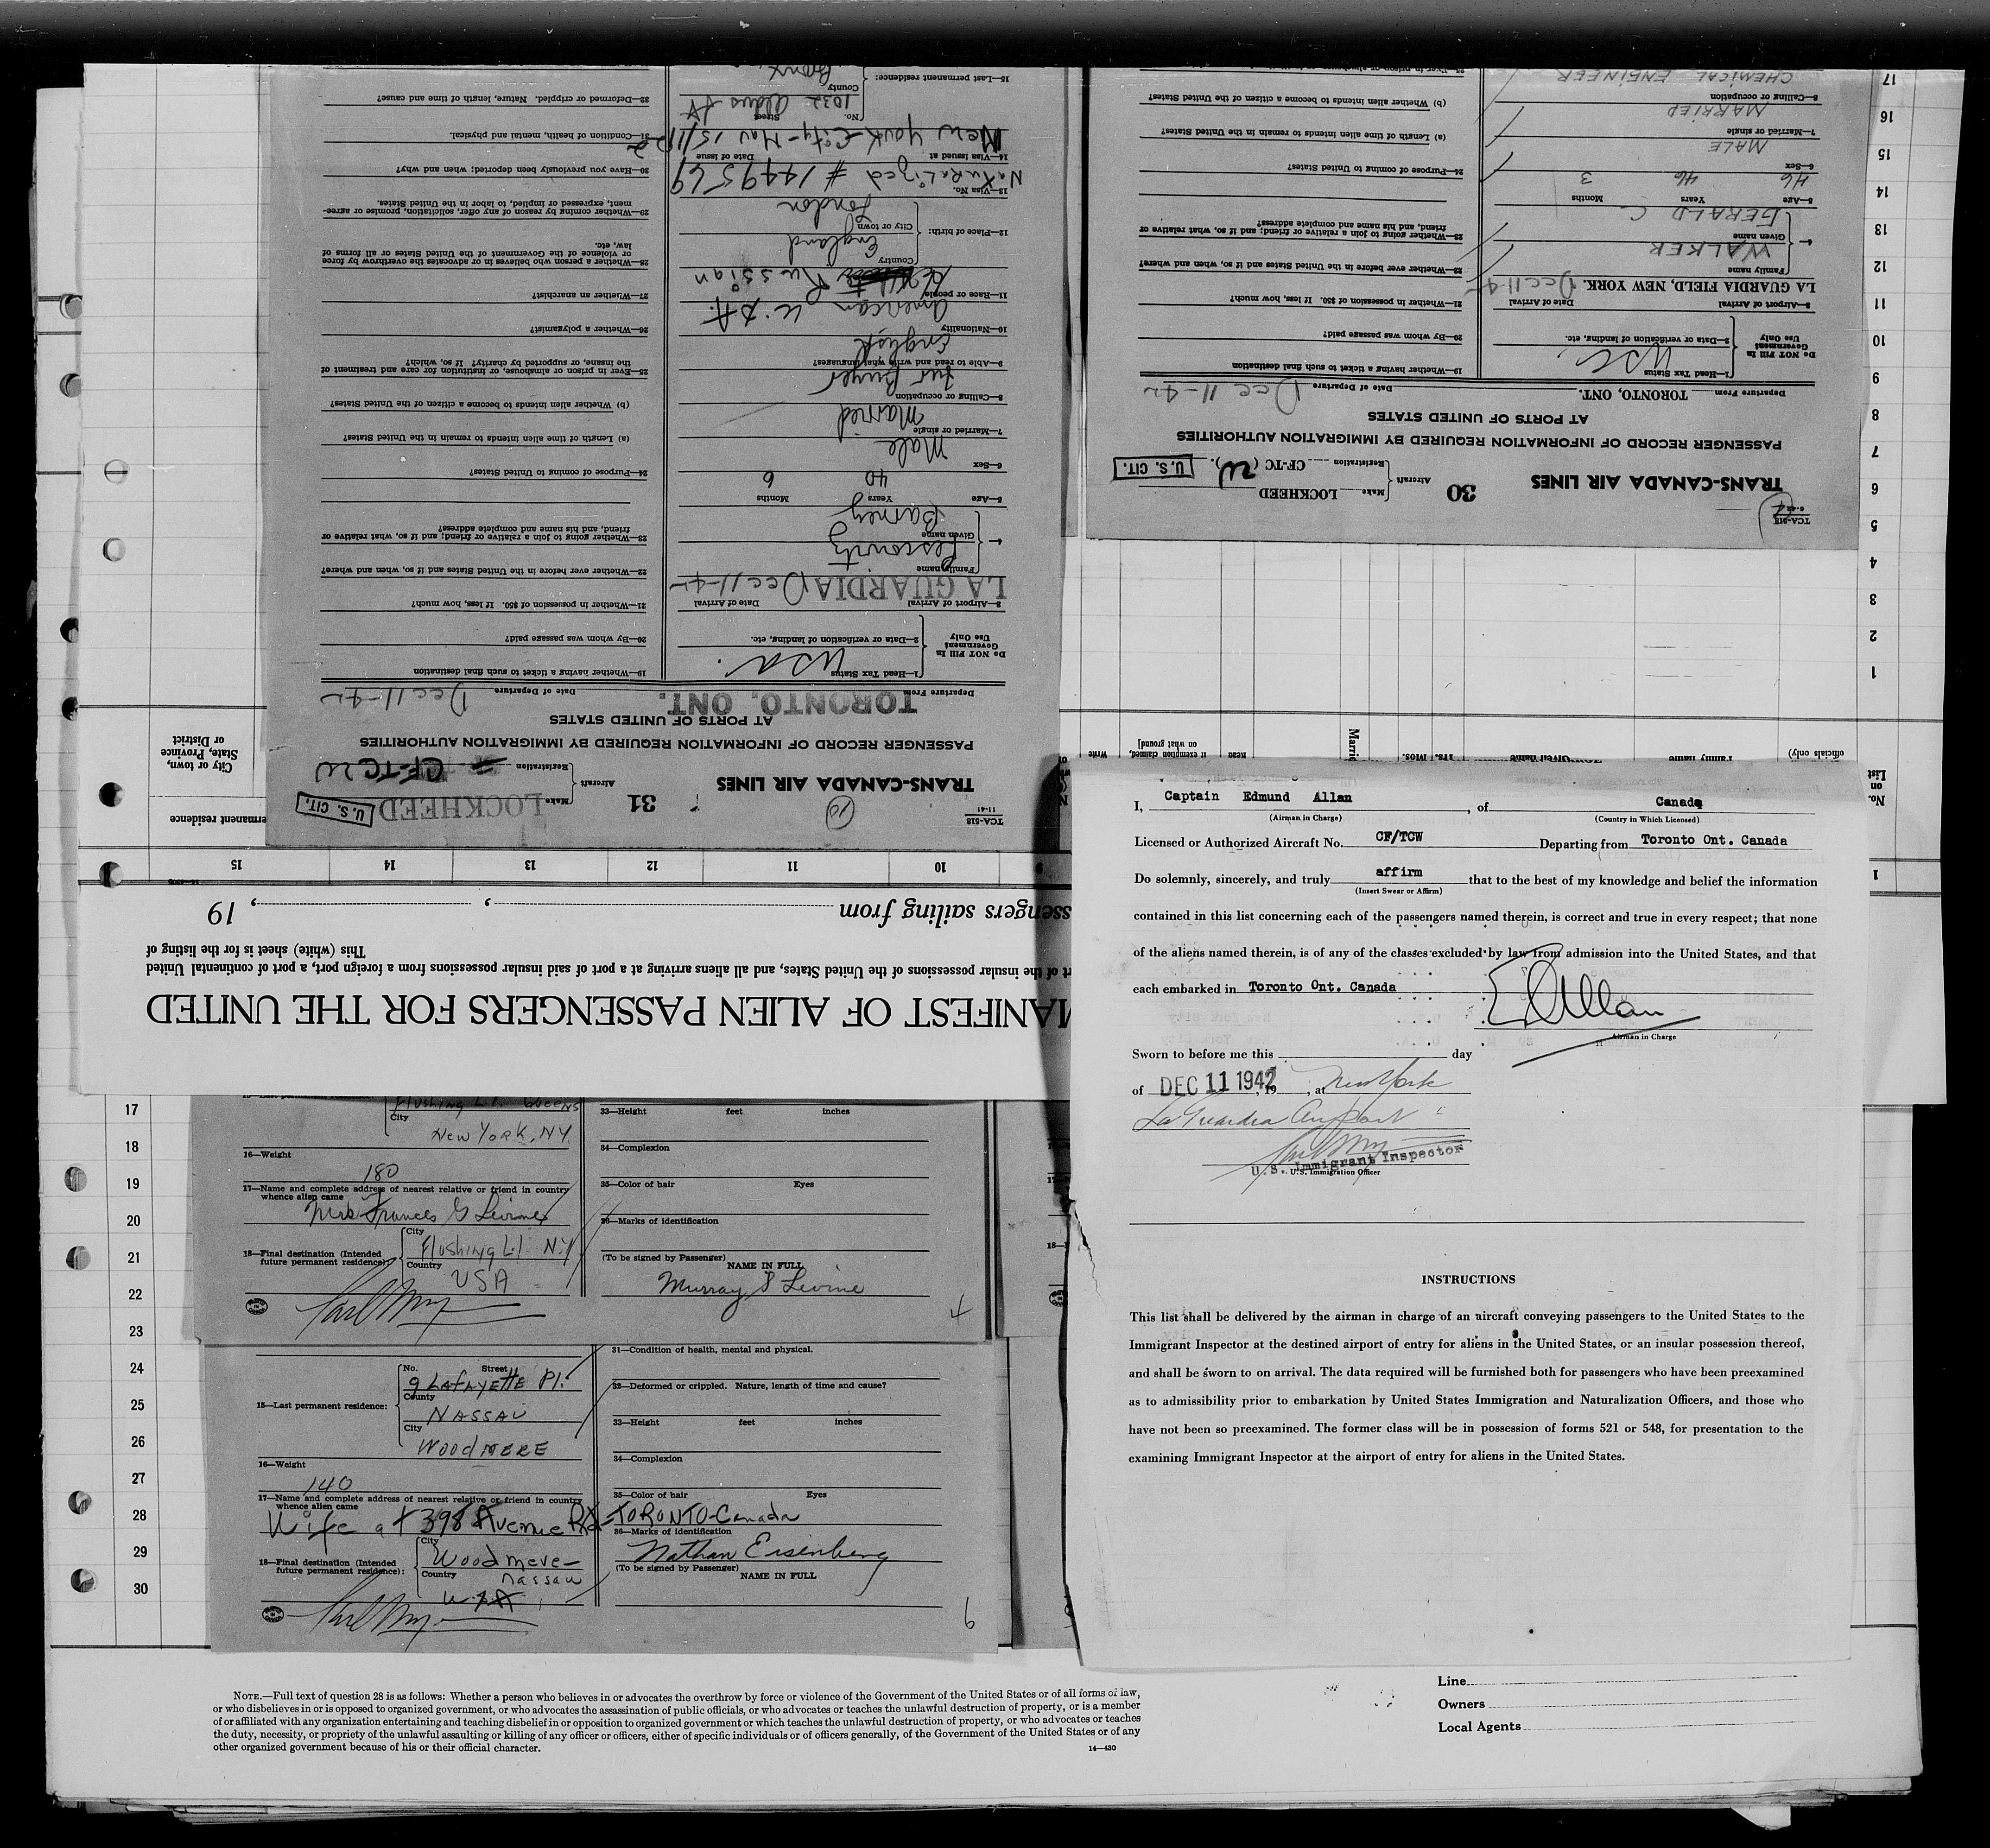 TCA-518
11-41
TRANS-CANADA AIR LINES
31
Aircraft
Make
LOCKHEED
Registration
CF-TCW
U. S. CIT.
PASSENGER RECORD OF INFORMATION REQUIRED BY IMMIGRATION AUTHORITIES
AT PORTS OF UNITED STATES
Departure From
TORONTO, ONT.
Date of Departure
Dec 11-42
Do NOT Fill In
Government
Use Only
1—Head Tax Status
USA.
2—Data or verification of landing, etc.
3—Airport of Arrival
LA GUARDIA
Date of Arrival
Dec 11-42
4—
Family name
Lescowitz
Given name
Barney
5—Age
Years
40
Months
6
6—Sex
Male
7—Married or single
Married
8—Calling or occupation
Fur Buyer
9—Able to read and write what languages?
English
10—Nationality
American U.S.A.
11—Race or people
White Russian
12—Place of birth:
Country
England
City or town
London
13—Visa No.
Naturalized # 1449569
14—Visa Issued at
Date of Issue
New York City-Mav 15/1922
15—Last permanent residence:
No.
Street
1032 Aldus St
County
Bronx
19—Whether having a ticket to such final destination
20—By whom was passage paid?
21—Whether in possession of $50. If less, how much?
22—Whether ever before in the United States and if so, when and where?
23—Whether going to join a relative or friend; and if so, what relative or
friend, and his name and complete address?
24—Purpose of coming to United States?
(a) Length of time alien intends to remain in the United States?
(b) Whether alien intends to become a citizen of the United States?
25—Ever in prison or almshouse, or institution for care and treatment of
the insane, or supported by charity? If so, which?
26—Whether a polygamist?
27—Whether an anarchist?
28—Whether a person who believes in or advocates the overthrow by force
or violence of the Government of the United States or all forms of
law, etc.
29—Whether coming by reason of any offer, solicitation, promise or agree-
ment, expressed or implied, to labor in the United States.
30—Have you previously been deported; when and why?
31—Condition of health, mental and physical.
32—Deformed or crippled. Nature, length of time and cause?
TCA-518
TRANS-CANADA AIR LINES
30
Aircraft
Make
LOCKHEED
Registration
CF-TC ( W ).
U. S. CIT.
PASSENGER RECORD OF INFORMATION REQUIRED BY IMMIGRATION AUTHORITIES
AT PORTS OF UNITED STATES
Departure From
TORONTO, ONT.
Date of Departure
Dec 11-42
Do NOT Fill In
Government
Use Only
1—Head Tax Status
USC
2—Data or verification of landing, etc.
3—Airport of Arrival
LA GUARDIA FIELD, NEW YORK.
Date of Arrival
Dec 11-42
4—
Family name
WALKER
Given name
GERALD C
5—Age
46
Years
46
Months
3
6—Sex
MALE
7—Married or single
MARRIED
8—Calling or occupation
CHEMICAL ENGINEER
19—Whether having a ticket to such final destination
20—By whom was passage paid?
21—Whether in possession of $50. If less, how much?
22—Whether ever before in the United States and if so, when and where?
23—Whether going to join a relative or friend; and if so, what relative or
friend, and his name and complete address?
24—Purpose of coming to United States?
(a) Length of time alien intends to remain in the United States?
(b) Whether alien intends to become a citizen of the United States?
1
2
3
4
5
6
7
8
9
10
11
12
13
14
15
16
17
No.
on
List
officials only)
Family name
Given name
Yrs.
Mos.
Read
if exemption claimed,
on what ground]
Write
permanent residence
City or town,
State, Province
or District
1
9
10
11
12
13
14
15
MANIFEST OF ALIEN PASSENGERS FOR THE UNITED
rt of the insular possessions of the United States, and all aliens arriving at a port of said insular possessions from a foreign port, a port of continental United
This (white) sheet is for the listing of
ssengers sailing from , , 19
I, Captain Edmund Allan, of Canada
(Airman in Charge)
(Country in Which Licensed)
Licensed or Authorized Aircraft No. CF/TCW Departing from Toronto Ont. Canada
Do solemnly, sincerely, and truly affirm that to the best of my knowledge and belief the information
(Insert Swear or Affirm)
contained in this list concerning each of the passengers named therein, is correct and true in every respect; that none
of the aliens named therein, is of any of the classes excluded by law from admission into the United States, and that
each embarked in Toronto Ont. Canada
E Allan
Airman in Charge
Sworn to before me this day
of DEC 11 1942, 19 , at New York
La Guardia Airport
U. S. Immigrant Inspector
U.S. Immigration Officer
INSTRUCTIONS
This list shall be delivered by the airman in charge of an aircraft conveying passengers to the United States to the
Immigrant Inspector at the destined airport of entry for aliens in the United States, or an insular possession thereof,
and shall be sworn to on arrival. The data required will be furnished both for passengers who have been preexamined
as to admissibility prior to embarkation by United States Immigration and Naturalization Officers, and those who
have not been so preexamined. The former class will be in possession of forms 521 or 548, for presentation to the
examining Immigrant Inspector at the airport of entry for aliens in the United States.
17
18
19
20
21
22
23
24
25
26
27
28
29
30
Flushing L.I. Queens
City
New York, N.Y.
16—Weight
180
17—Name and complete address of nearest relative or friend in country
whence alien came
Mrs Frances G Levine
18—Final destination (Intended
future permanent residence)
City
Flushing L.I. N.Y
Country
USA
33—Height
feet
inches
34—Complexion
35—Color of hair
Eyes
36—Marks of identification
(To be signed by Passenger)
NAME IN FULL
Murray S Levine
15—Last permanent residence:
No.
Street
9 LAFAYETTE Pl.
County
NASSAU
City
WOODMERE
16—Weight
140
17—Name and complete address of nearest relative or friend in country
whence alien came
Wife at 398 Avenue Rd-TORONTO-Canada
18—Final destination (Intended
future permanent residence):
City
Woodmere-
nassau
Country
U.S.A
31—Condition of health, mental and physical.
32—Deformed or crippled. Nature, length of time and cause?
33—Height
feet
inches
34—Complexion
35—Color of hair
Eyes
36—Marks of identification
Nathan Eisenberg
(To be signed by Passenger)
NAME IN FULL
9
NOTE.—Full text of question 28 is as follows: Whether a person who believes in or advocates the overthrow by force or violence of the Government of the United States or of all forms of law,
or who disbelieves in or is opposed to organized government, or who advocates the assassination of public officials, or who advocates or teaches the unlawful destruction of property, or is a member
of or affiliated with any organization entertaining and teaching disbelief in or opposition to organized government or which teaches the unlawful destruction of property, or who advocates or teaches
the duty, necessity, or propriety of the unlawful assaulting or killing of any officer or officers, either of specific individuals or of officers generally, of the Government of the United States or of any
other organized government because of his or their official character.
14—430
Line
Owners
Local Agents